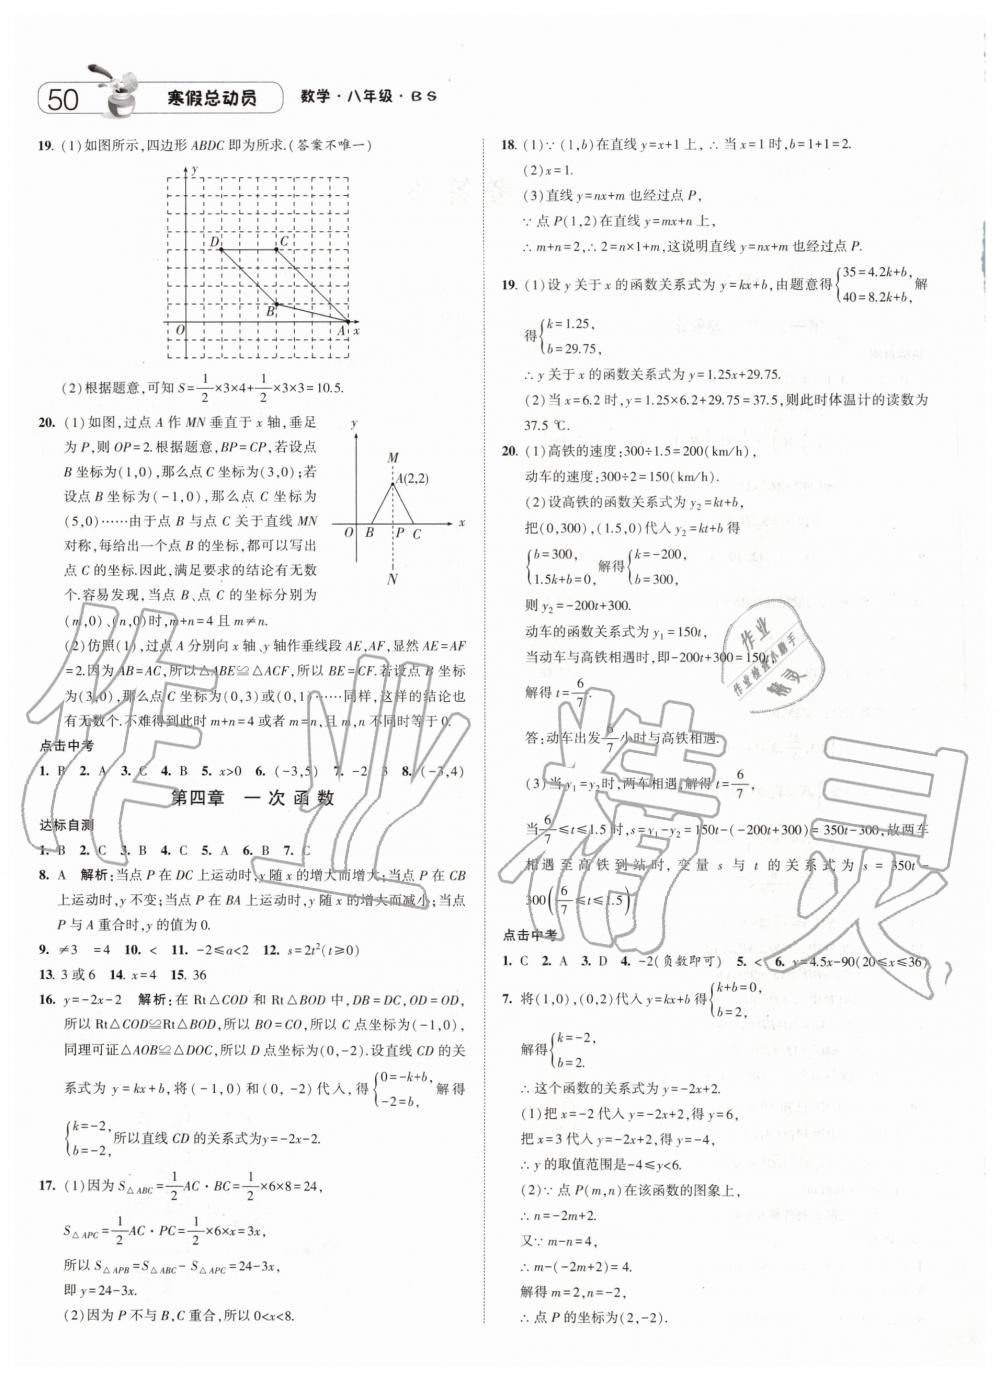 50 寒假总动员 数学·八年级·BS
19. (1)如图所示,四边形 ABDC 即为所求.(答案不唯一)
y
D C
B
O A x
(2)根据题意,可知 S=1/2×3×4+1/2×3×3=10.5.
20. (1)如图,过点 A 作 MN 垂直于 x 轴,垂足
为 P,则 OP=2.根据题意,BP=CP,若设点
B 坐标为(1,0),那么点 C 坐标为(3,0);若
设点 B 坐标为(-1,0),那么点 C 坐标为
(5,0)……由于点 B 与点 C 关于直线 MN
对称,每给出一个点 B 的坐标,都可以写出
点 C 的坐标.因此,满足要求的结论有无数
个.容易发现,当点 B、点 C 的坐标分别为
(m,0)、(n,0)时,m+n=4 且 m≠n.
y
M
A(2,2)
O B P C x
N
(2)仿照(1),过点 A 分别向 x 轴、y 轴作垂线段 AE,AF,显然 AE=AF
=2.因为 AB=AC,所以△ABE≌△ACF,所以 BE=CF.若设点 B 坐标
为(3,0),那么点 C 坐标为(0,3)或(0,1)……同样,这样的结论也
有无数个.不难得到此时 m+n=4 或者 m=n,且 m,n 不同时等于 0.
点击中考
1. B 2. A 3. C 4. B 5. x>0 6. (-3,5) 7. -2 3 8. (-3,4)
第四章 一次函数
达标自测
1. B 2. C 3. B 4. C 5. A 6. B 7. C
8. A 解析:当点 P 在 DC 上运动时,y 随 x 的增大而增大;当点 P 在 CB
上运动时,y 不变;当点 P 在 BA 上运动时,y 随 x 的增大而减小;当点
P 与 A 重合时,y 的值为 0.
9. ≠3 =4 10. < 11. -2≤a<2 12. s=2t²(t≥0)
13. 3 或 6 14. x=4 15. 36
16. y=-2x-2 解析:在 Rt△COD 和 Rt△BOD 中,DB=DC,OD=OD,
所以 Rt△COD≌Rt△BOD,所以 BO=CO,所以 C 点坐标为(-1,0),
同理可证△AOB≌△DOC,所以 D 点坐标为(0,-2).设直线 CD 的关
系式为 y=kx+b,将(-1,0)和(0,-2)代入,得{0=-k+b, -2=b, 解得
{k=-2, b=-2, 所以直线 CD 的关系式为y=-2x-2.
17. (1)因为 S△ABC=1/2AC·BC=1/2×6×8=24,
S△APC=1/2AC·PC=1/2×6×x=3x,
所以 S△APB=S△ABC-S△APC=24-3x,
即 y=24-3x.
(2)因为 P 不与 B,C 重合,所以 0<x<8.
18. (1)∵(1,b)在直线 y=x+1 上,∴当 x=1 时,b=1+1=2.
(2)x=1.
(3)直线 y=nx+m 也经过点 P,
∵点 P(1,2)在直线 y=mx+n 上,
∴m+n=2,∴2=n×1+m,这说明直线 y=nx+m 也经过点 P.
19. (1)设 y 关于 x 的函数关系式为 y=kx+b,由题意得{35=4.2k+b, 40=8.2k+b, 解
得{k=1.25, b=29.75,
∴y 关于 x 的函数关系式为 y=1.25x+29.75.
(2)当 x=6.2 时,y=1.25×6.2+29.75=37.5,则此时体温计的读数为
37.5 ℃.
20. (1)高铁的速度:300÷1.5=200(km/h),
动车的速度:300÷2=150(km/h).
(2)设高铁的函数关系式为 y₂=kt+b,
把(0,300),(1.5,0)代入 y₂=kt+b 得
{b=300, 1.5k+b=0, 解得{k=-200, b=300,
则 y₂=-200t+300.
动车的函数关系式为 y₁=150t,
当动车与高铁相遇时,即-200t+300=150t,
解得 t=6/7.
答:动车出发6/7小时与高铁相遇.
(3)当 y₁=y₂时,两车相遇,解得 t=6/7,
当6/7≤t≤1.5 时,s=y₁-y₂=150t-(-200t+300)=350t-300,故两车
相遇至高铁到站时,变量 s 与 t 的关系式为 s=350t-
300(6/7≤t≤1.5)
点击中考
1. C 2. A 3. D 4. -2(负数即可) 5. < 6. y=4.5x-90(20≤x≤36)
7. 将(1,0),(0,2)代入 y=kx+b 得{k+b=0, b=2,
解得{k=-2, b=2.
∴这个函数的关系式为 y=-2x+2.
(1)把 x=-2 代入 y=-2x+2,得 y=6,
把 x=3 代入 y=-2x+2,得 y=-4,
∴y 的取值范围是-4≤y<6.
(2)∵点 P(m,n)在该函数的图象上,
∴n=-2m+2.
又∵m-n=4,
∴m-(-2m+2)=4.
解得 m=2,n=-2,
∴点 P 的坐标为(2,-2).
作业精灵
作业
作业检查小助手
精灵